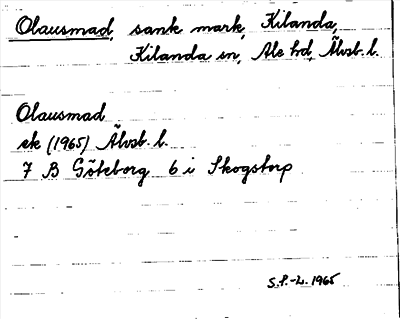 Olausmad, sank mark, Kilanda,
Kilanda sn, Ale hd, Älvsb. l.
Olausmad
ek (1965) Älvsb. l.
7 B Göteborg 6 i Skogstorp
S.F.-L. 1965